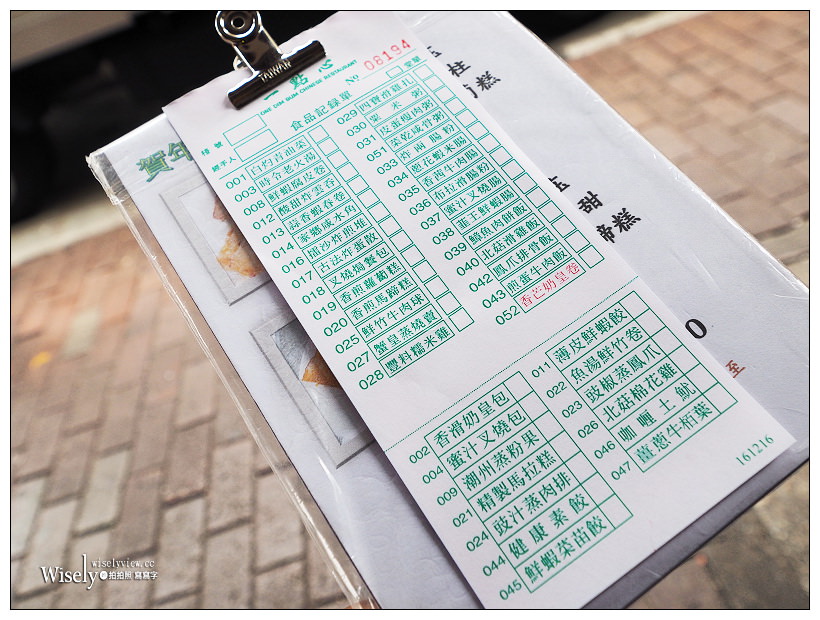 TAIWAN
一點心
ONE DIM SUM CHINESE RESTAURANT
Nº 08194
食品記録單
檯號
經手人
001 白灼青油菜
003 時令老火湯
008 鮮蝦腐皮卷
012 酸甜炸雲吞
013 蒜香蝦春卷
014 家鄉咸水角
016 流沙炸煎堆
017 古法炸蛋散
018 叉燒焗餐包
019 香煎蘿蔔糕
020 香煎馬蹄糕
025 鮮竹牛肉球
027 蟹皇蒸燒賣
028 豐料糯米雞
029 四寶滑雞扎
030 粟米粥
031 皮蛋瘦肉粥
051 菜乾咸骨粥
033 炸兩腸粉
034 蔥花蝦米腸
035 香茜牛肉腸
036 布拉滑腸粉
037 蜜汁叉燒腸
038 韭王鮮蝦腸
039 鯪魚肉餅飯
040 北菇滑雞飯
042 鳳爪排骨飯
043 煎蛋牛肉飯
052 香芒奶皇卷
002 香滑奶皇包
004 蜜汁叉燒包
009 潮州蒸粉果
021 精製馬拉糕
024 豉汁蒸肉排
044 健康素餃
045 鮮蝦菜苗餃
011 薄皮鮮蝦餃
022 魚湯鮮竹卷
023 豉椒蒸鳳爪
026 北菇棉花雞
046 咖喱土魷
047 薑蔥牛栢葉
161216
賀年
柱
糕
甜
蹄糕
0
至
wiselyview.cc
Wisely 拍拍照 寫寫字